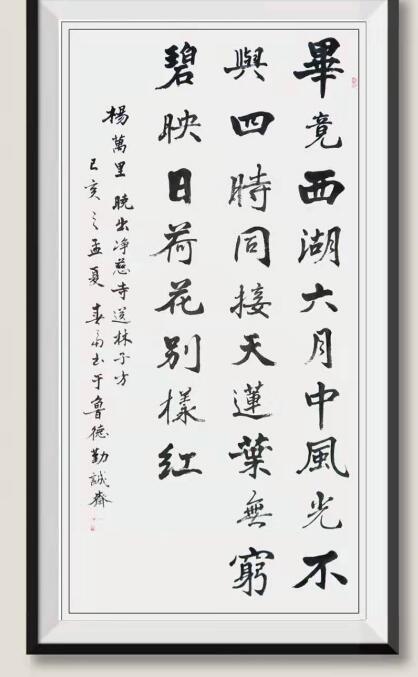 畢竟西湖六月中風光不
與四時同接天蓮葉無窮
碧映日荷花別樣紅
楊萬里曉出净慈寺送林子方
己亥之孟夏春🈳書于魯德勤誠齋